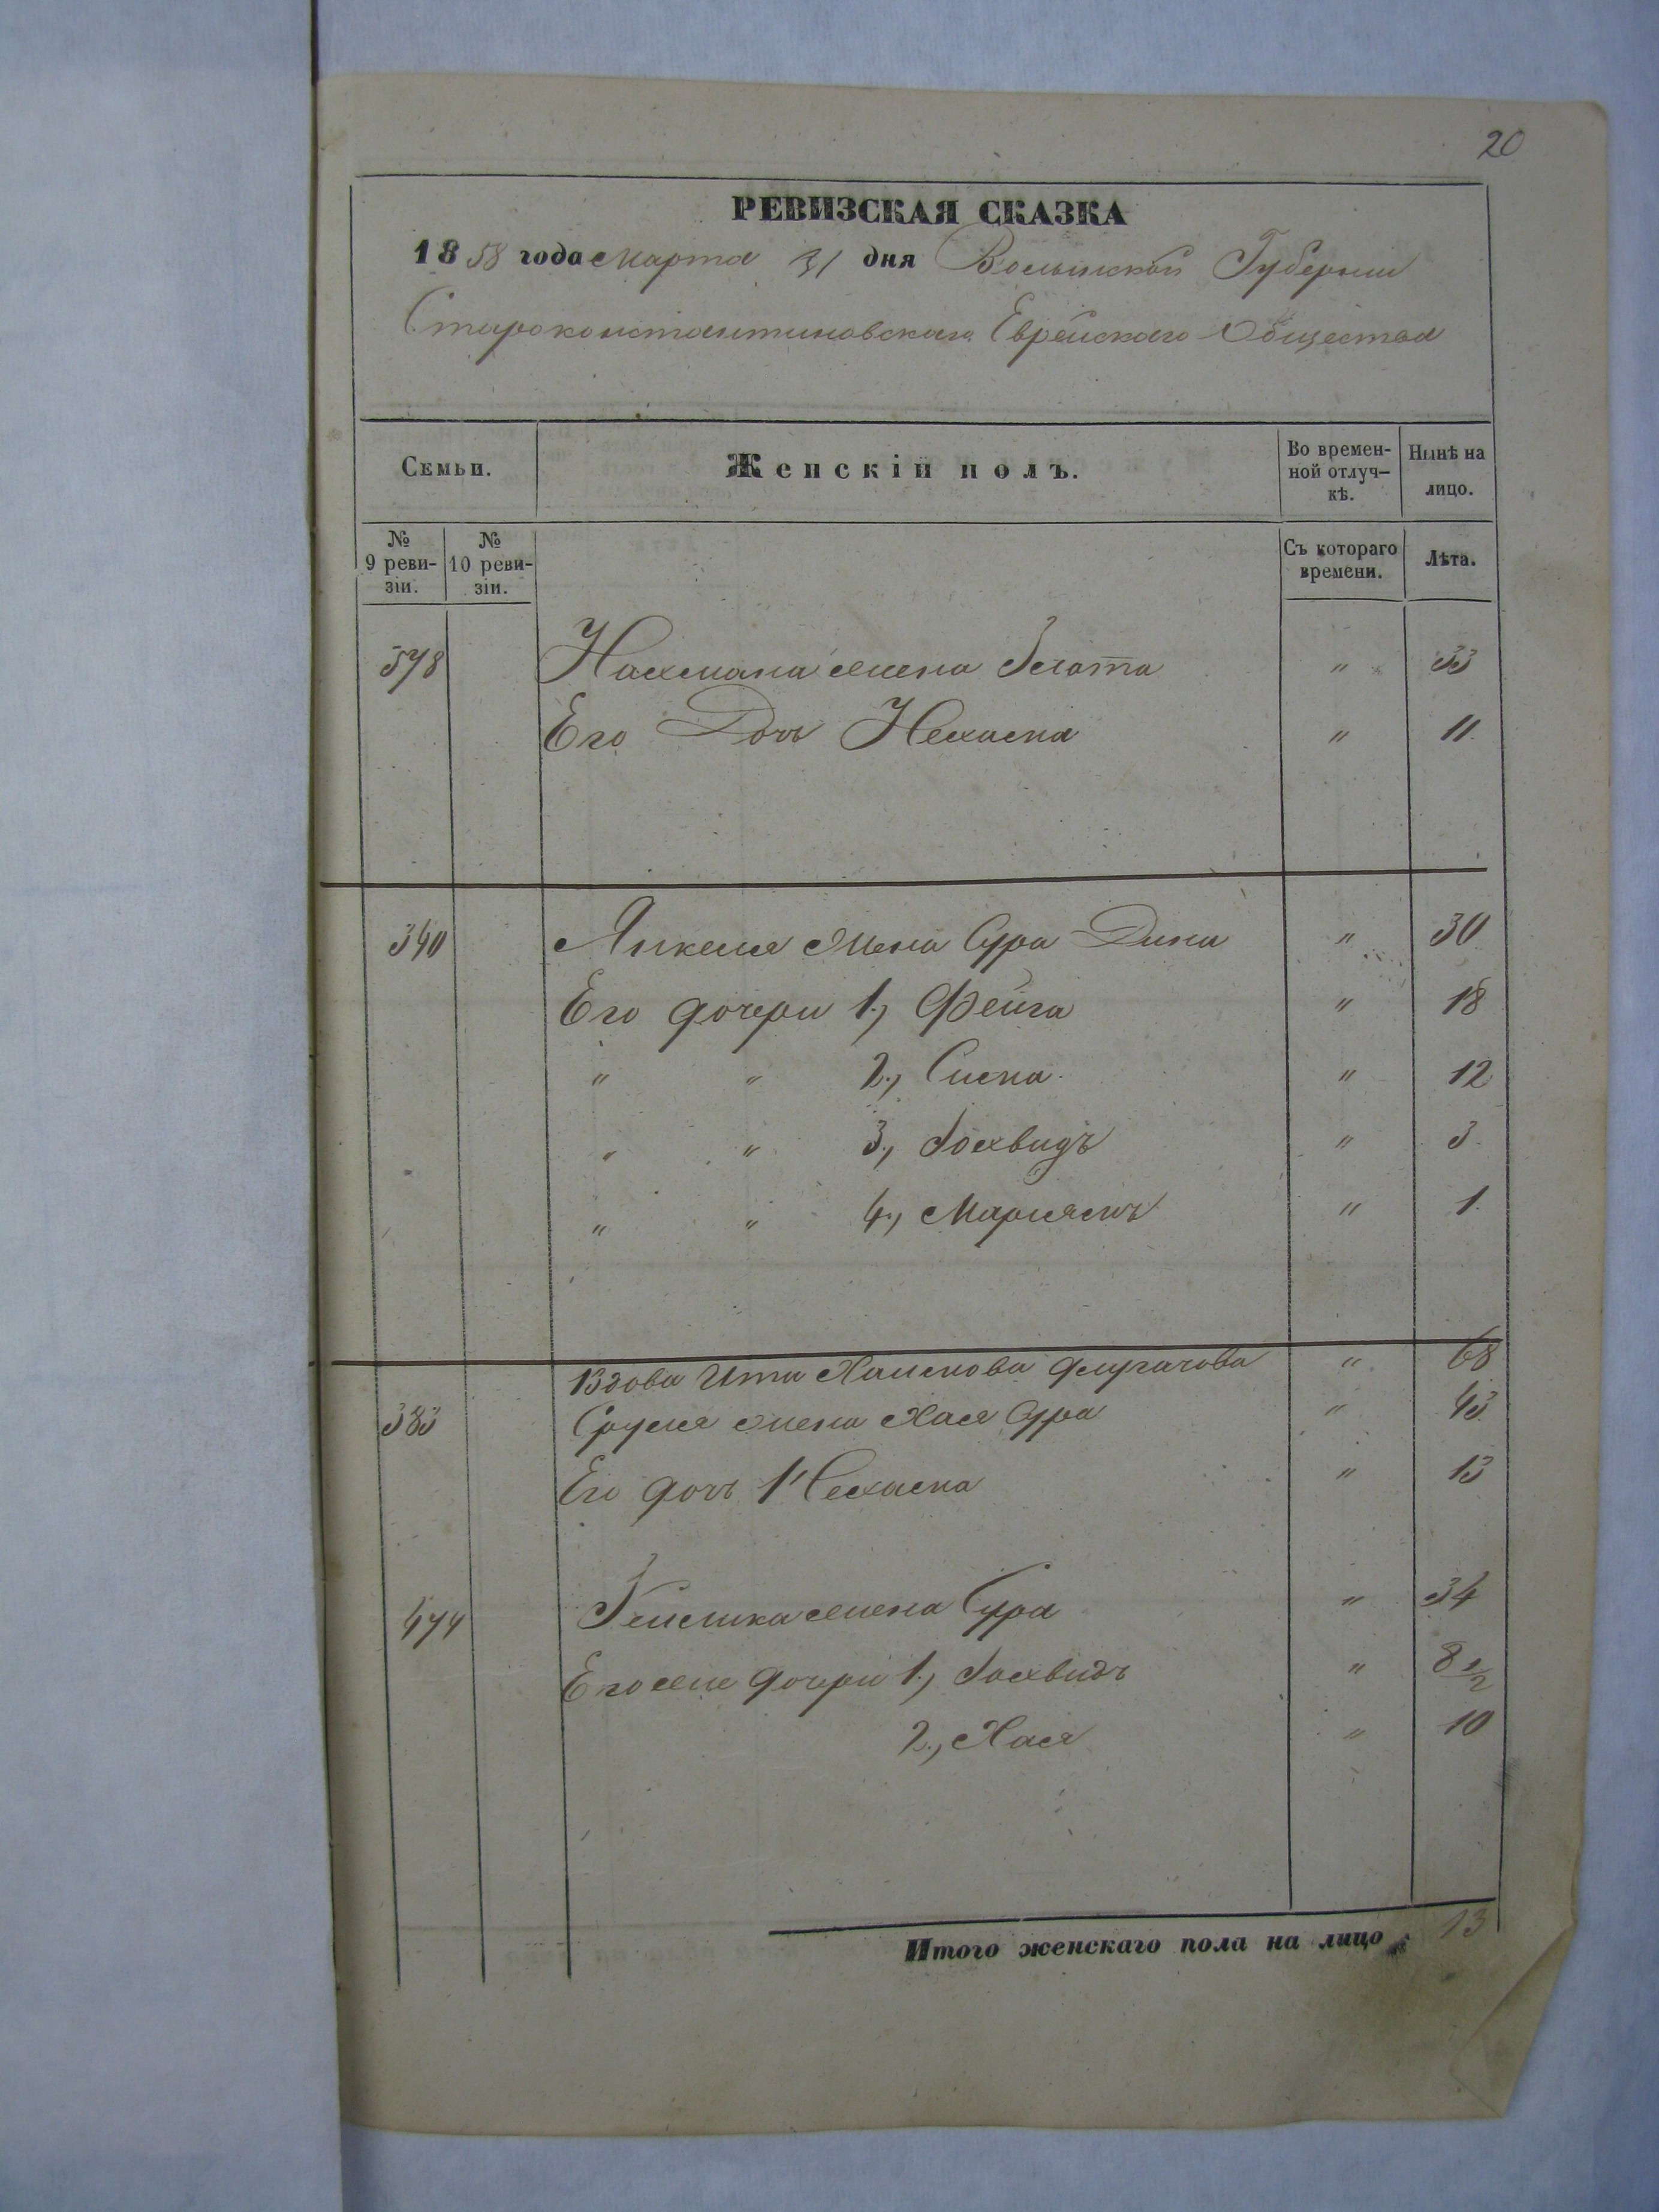 20
РЕВИЗСКАЯ СКАЗКА
1858 года Марта 31 дня Волынской Губернии
Староконстантиновскаго Еврейскаго Общества
Семьи. Женскій полъ. Во времен-ной отлуч-кѣ. Нынѣ на лицо.
№ 9 реви-зіи. № 10 реви-зіи. Съ котораго времени. Лѣта.
578 Нахмана жена Злота " 33
Его Дочь Нехасна " 11
340 Янкеля жена Сура Дина " 30
Его дочери 1., Фейга " 18
" " 2., Сисна " 12
" " 3., Іохвидъ " 3
" " 4., Маріямъ " 1
Вдова Ита Хаимова " 68
383 Сруля жена Хая Сура " 43
Его дочь 1 Нехасна " 13
474 жена Сура " 34
Его же дочери 1., Іохвидъ " 8 1/2
2., Хая " 10
Итого женскаго пола на лицо 13